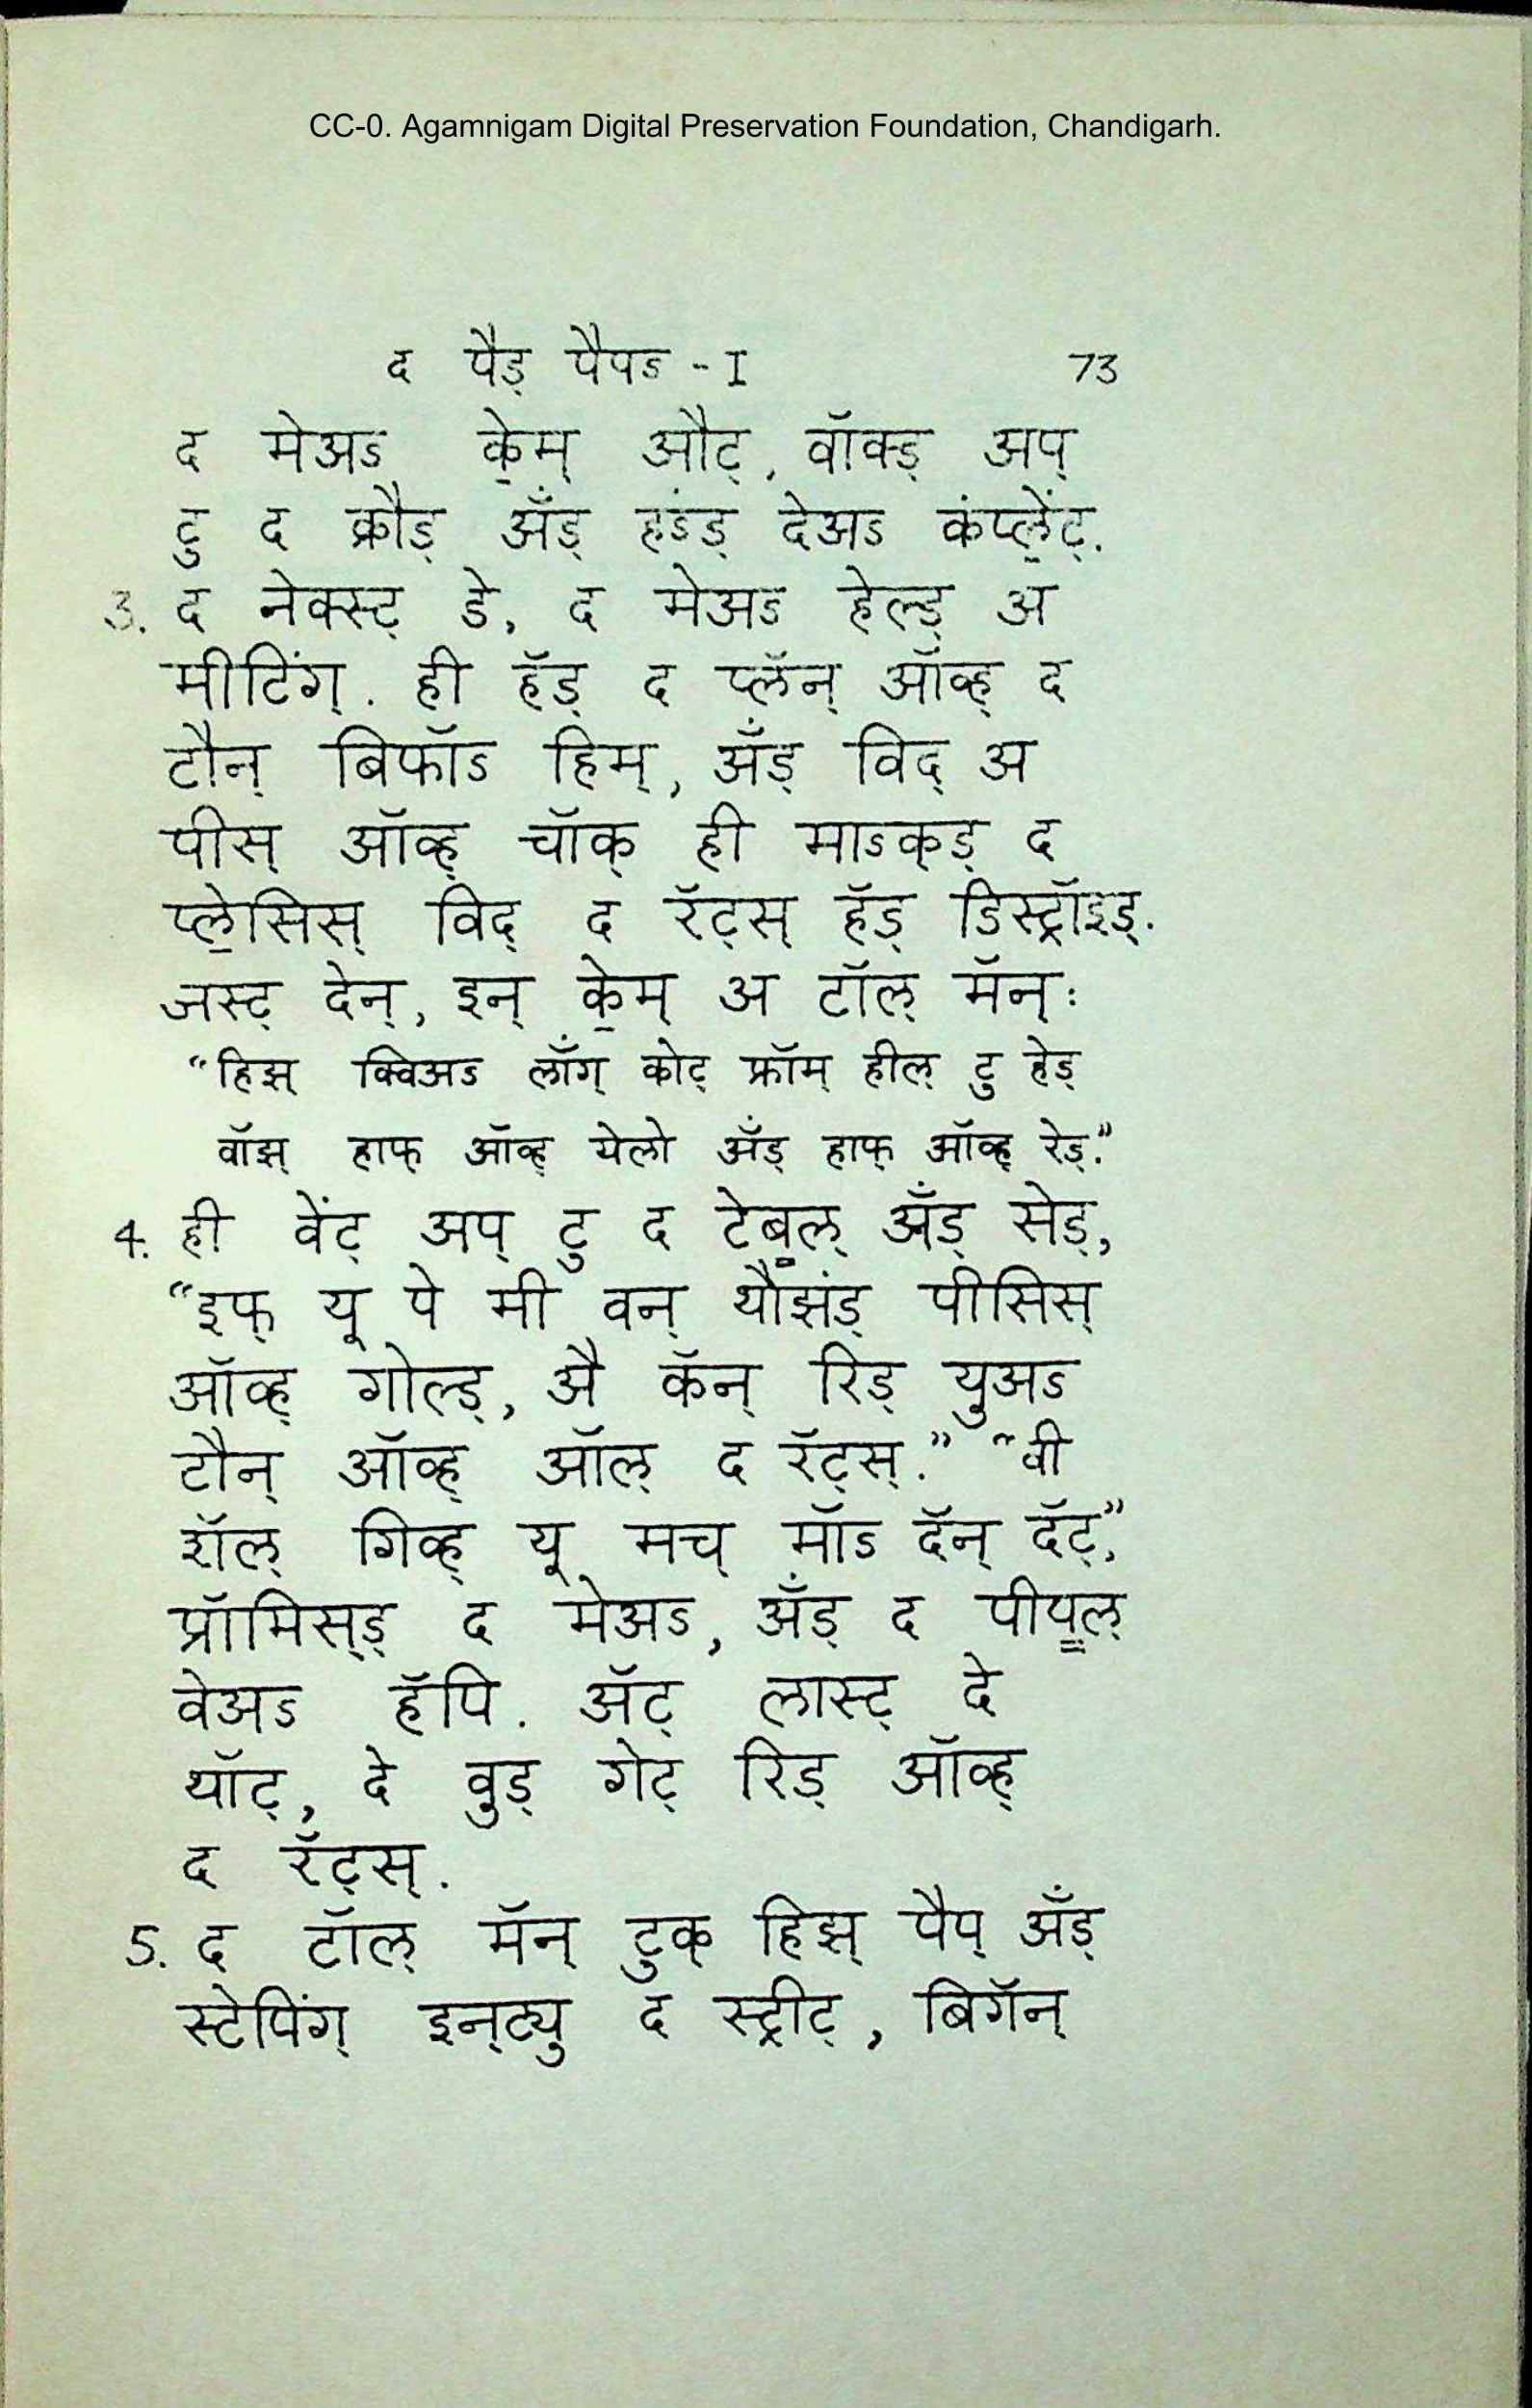 CC-0. Agamnigam Digital Preservation Foundation, Chandigarh.
द पैड् पैपऽ - I 73
द मेअऽ के॒म् औट्, वॉक्ड् अप्
टु द क्रौड् अँड् हऽंड् देअऽ कंप्ले॒ंट्.
3. द नेक्स्ट् डे, द मेअऽ हेल्ड् अ
मीटिंग्. ही हॅड् द प्लॅन् ऑव्ह् द
टौन् बिफॉऽ हिम्, अँड् विद् अ
पीस् ऑव्ह् चॉक् ही माऽक्ड् द
प्ले॒सिस् विद् द रॅट्स् हॅड् डिस्ट्रॉइड्.
जस्ट् देन्, इन् के॒म् अ टॉल् मॅन्:
“हिझ् क्विअऽ लाँग् कोट् फ्रॉम् हील् टु हेड्
वॉझ् हाफ् ऑव्ह् येलो अँड् हाफ् ऑव्ह् रेड्.”
4. ही वेंट् अप् टु द टेब॒ल् अँड् सेड्,
“इफ् यू पे मी वन् थौझंड् पीसिस्
ऑव्ह् गोल्ड्, अै कॅन् रिड् युअऽ
टौन् ऑव्ह् ऑल् द रॅट्स्.” “वी
शॅल् गिव्ह् यू मच् मॉऽ दॅन् दॅट्,”
प्रॉमिस्ड् द मेअऽ, अँड् द पीप॒ल्
वेअऽ हॅपि. ॲट् लास्ट् दे
थॉट्, दे वुड् गेट् रिड् ऑव्ह्
द रॅट्स्.
5. द टॉल् मॅन् टुक् हिझ् पैप् अँड्
स्टेपिंग् इन्ट्यु द स्ट्रीट्, बिगॅन्